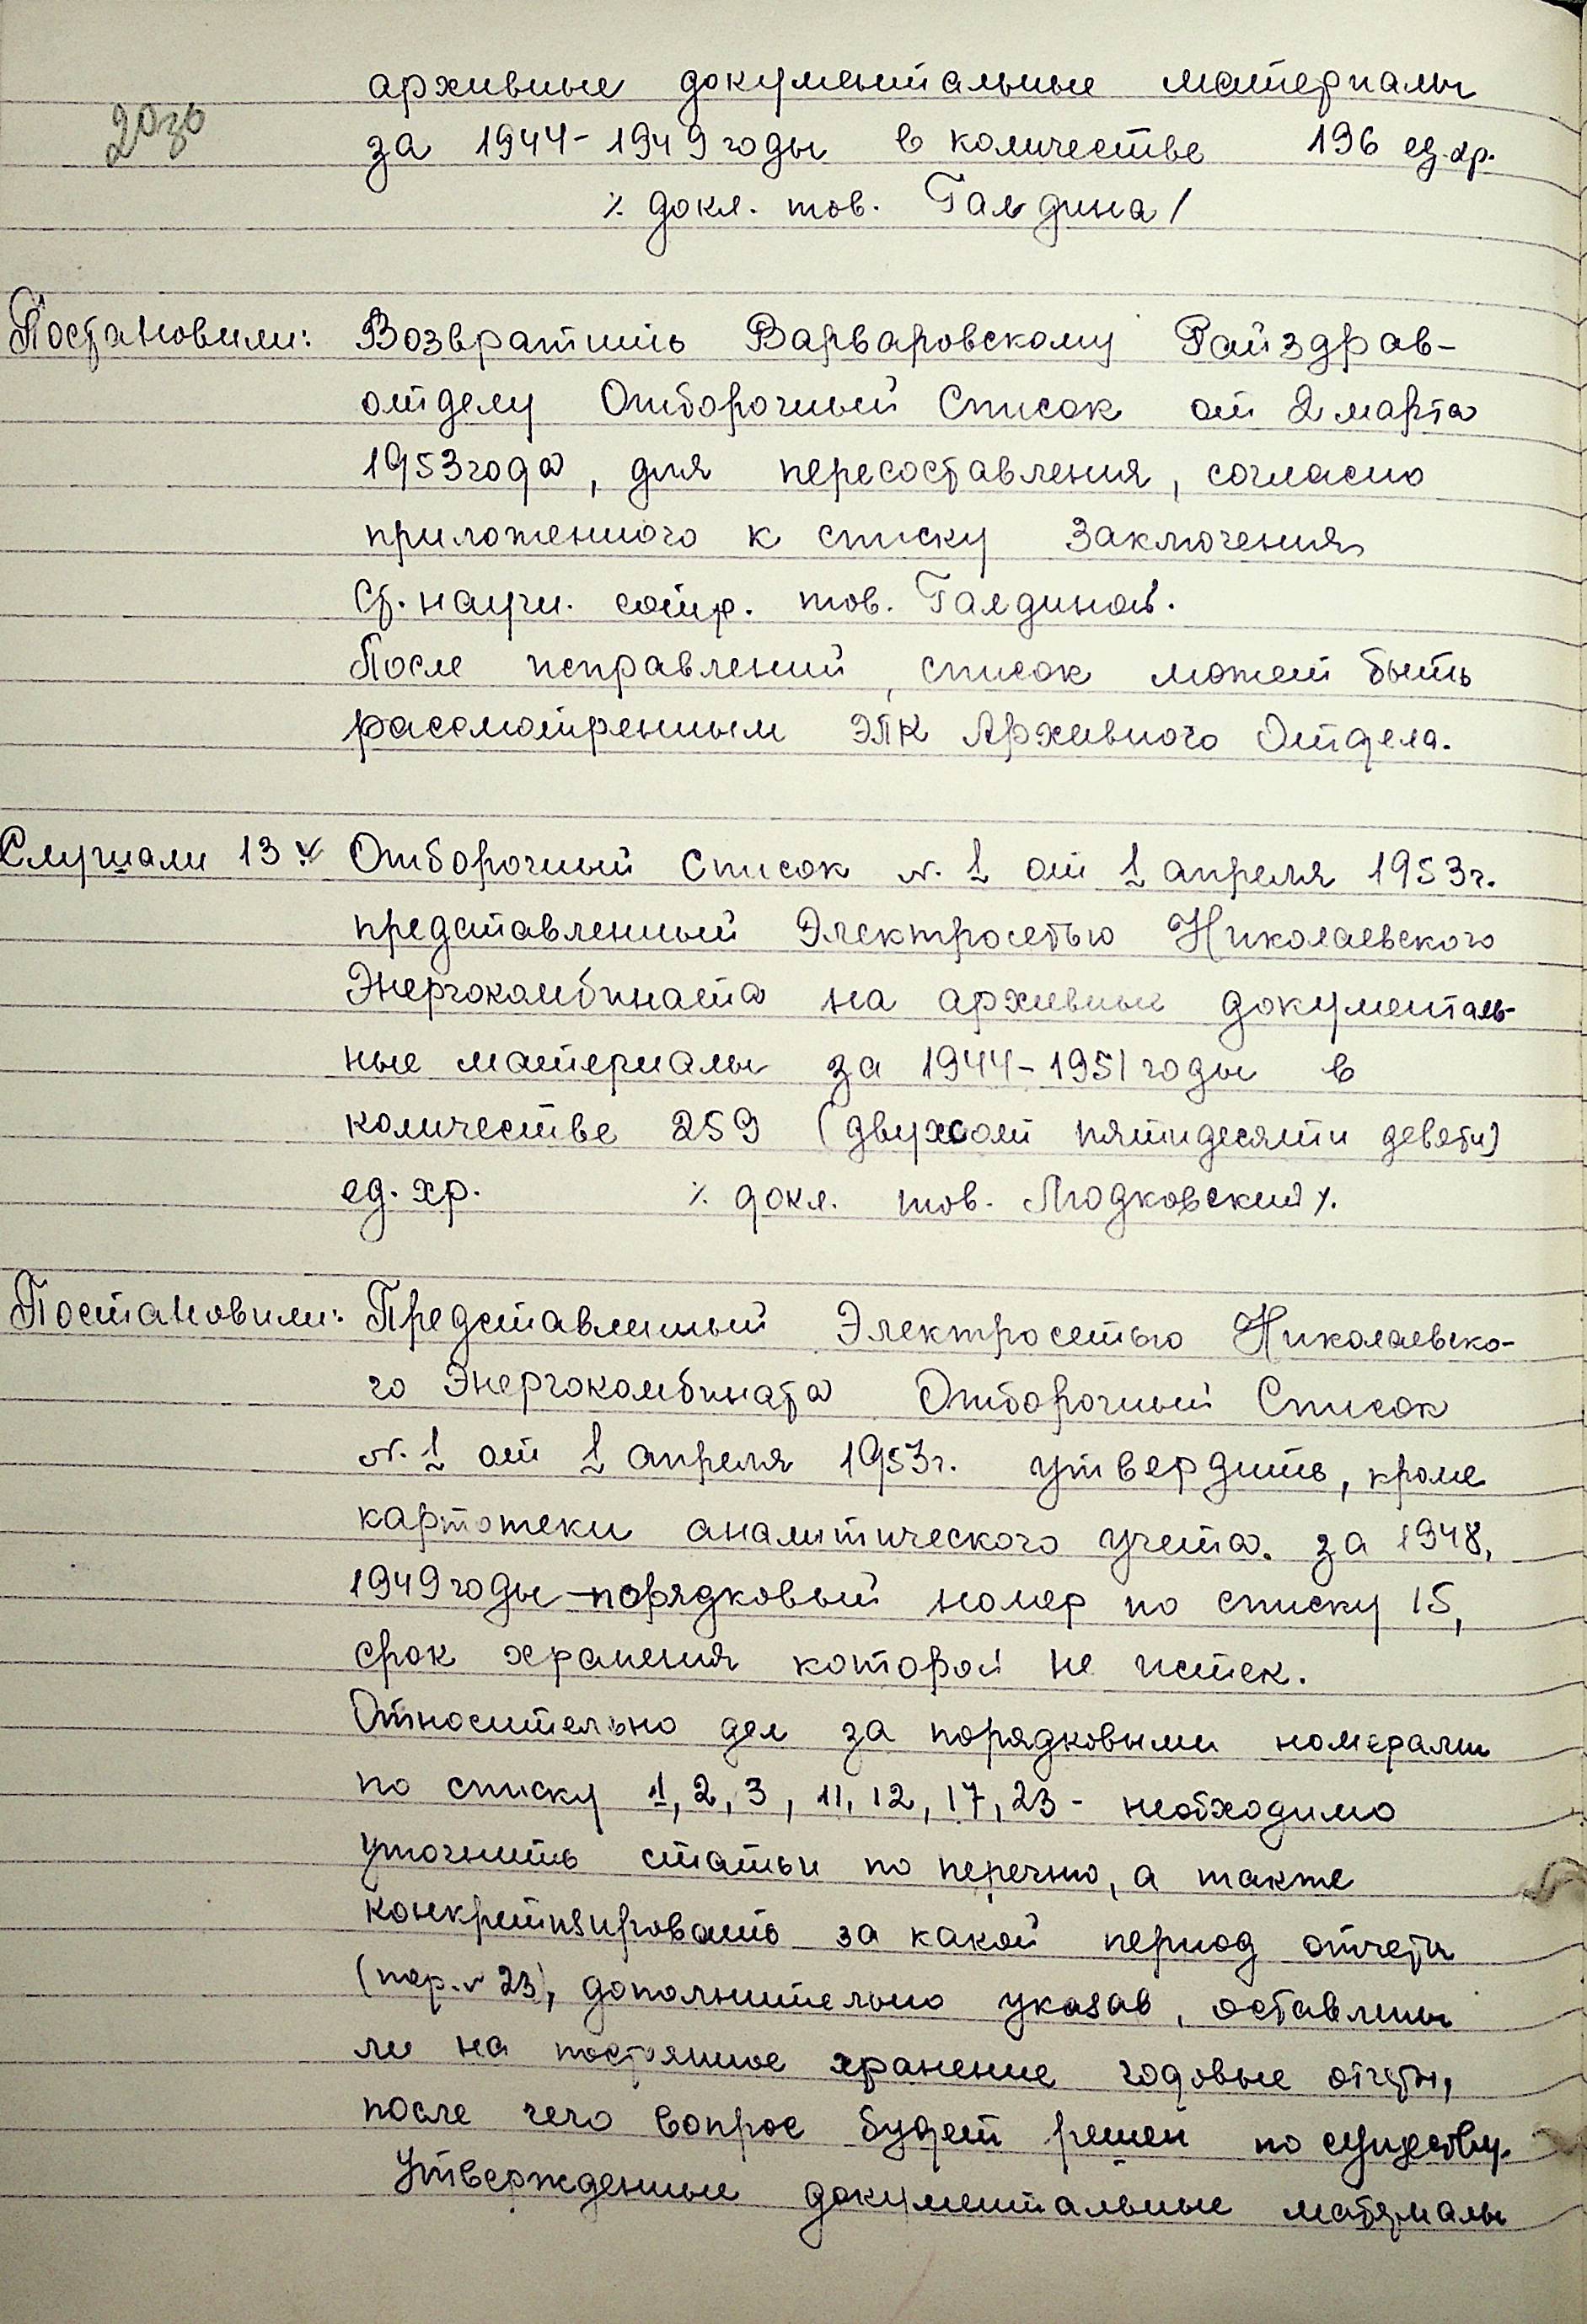 архивные документальные материалы
20зв
за 1944-1949 годы в количестве 196 ед.хр.
% докл. тов. Галдина/
Постановили: Возвратить Варваровскому Райздрав-
отделу Отборочный Список от 2 марта
1953 года, для пересоставления, согласно
приложенного к списку Заключения
Ст. научн. сотр. тов. Галдиной.
После исправлений, список может быть
рассмотренным ЭПК Архивного Отдела.
Слушали 13. Отборочный Список №. 1 от 1 апреля 1953г.
представленный Электросетью Николаевского
Энергокомбината на архивные документаль-
ные материалы за 1944-1951 годы в
количестве 259 (двухсот пятидесяти девяти)
ед. хр. % докл. тов. Людковский %.
Постановили: Представленный Электросетью Николаевско-
го Энергокомбината Отборочный Список
№. 1 от 1 апреля 1953г. утвердить, кроме
картотеки аналитического учета. за 1948,
1949 годы - порядковый номер по списку 15,
срок хранения которой не истек.
Относительно дел за порядковыми номерами
по списку 1, 2, 3, 11, 12, 17, 23 - необходимо
уточнить статьи по перечню, а также
конкретизировать за какой период отчеты
(пор. № 23), дополнительно указав, оставлены
ли на постоянное хранение годовые отчеты,
после чего вопрос будет решен по существу.
Утвержденные документальные материалы